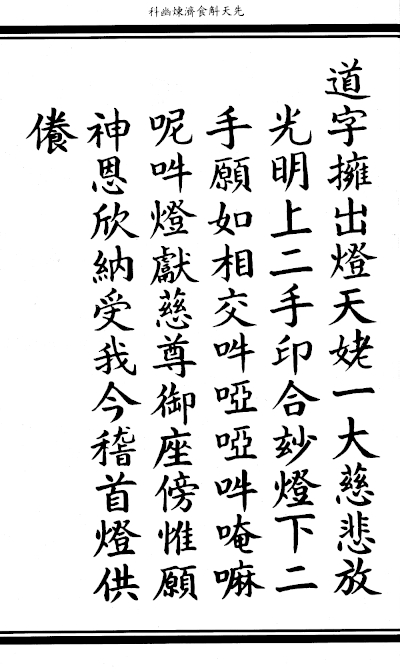 先天斛食濟煉幽科
道字擁出燈天姥一大慈悲放
光明上二手印合玅燈下二
手願如相交吽啞啞吽唵嘛
呢吽燈獻慈尊御座傍惟願
神恩欣納受我今稽首燈供